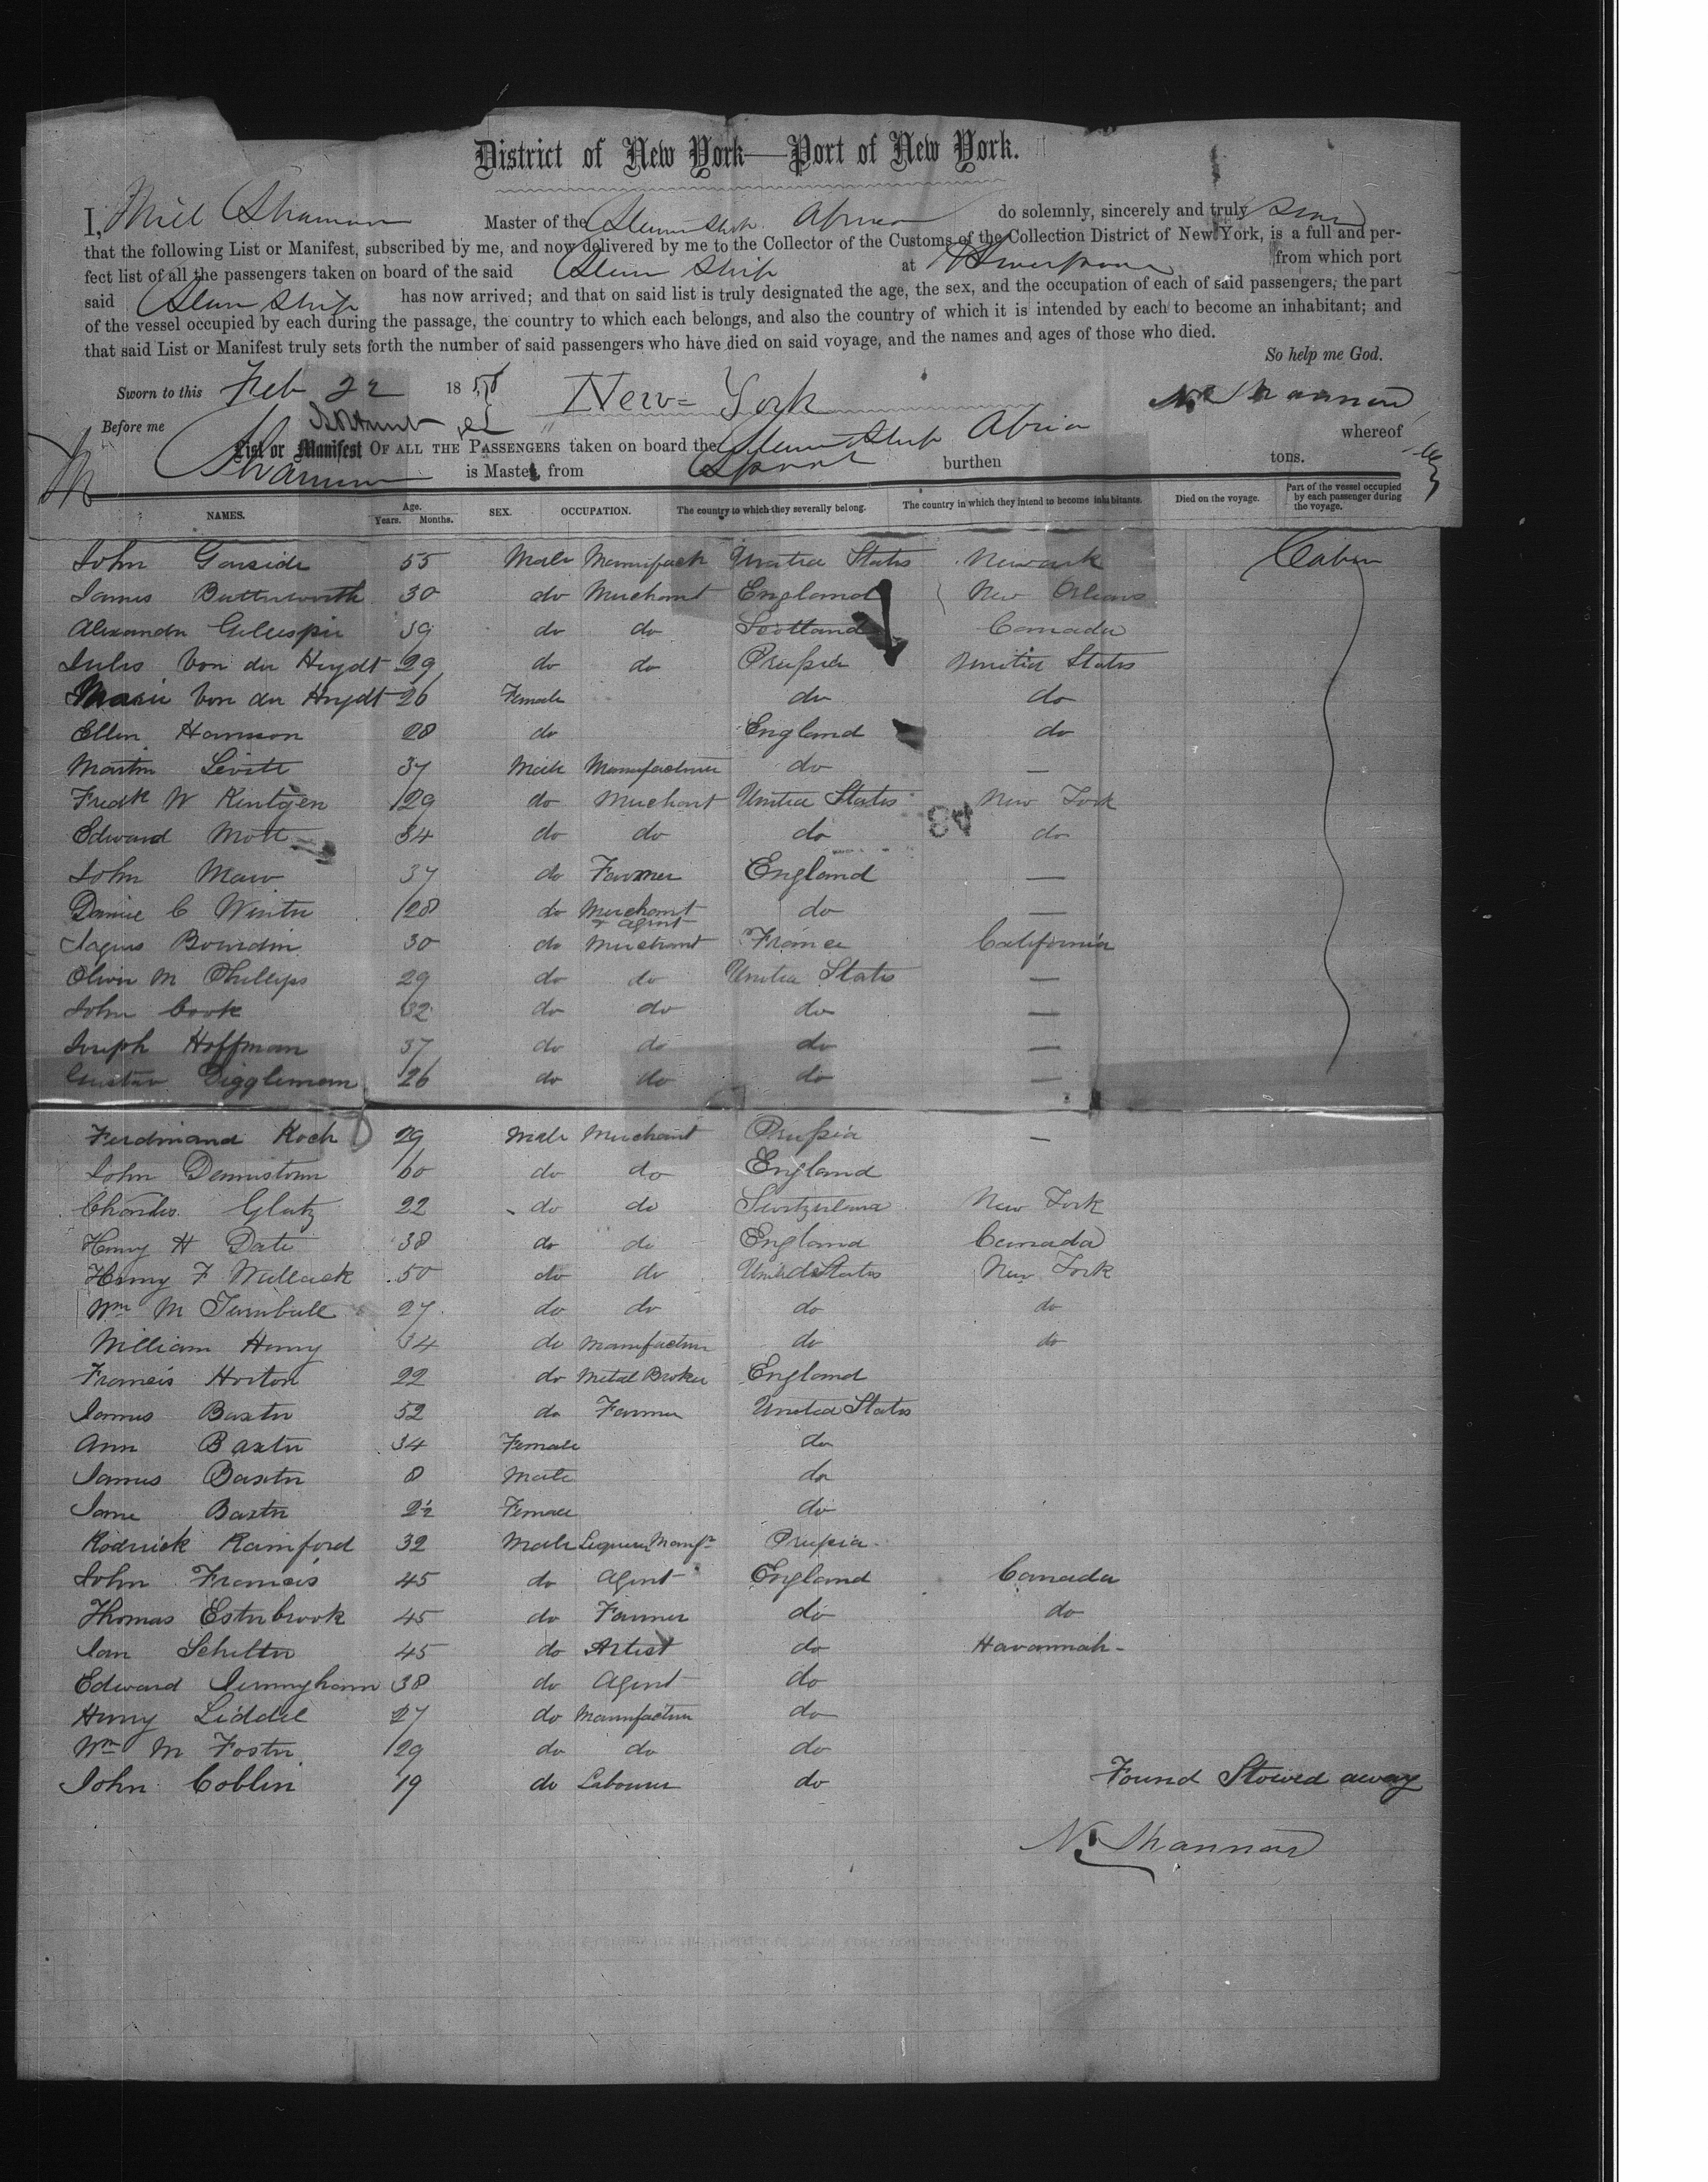 District of New York—Port of New York.
I, Neil Shannon Master of the Steam Ship Africa do solemnly, sincerely and truly swear
that the following List or Manifest, subscribed by me, and now delivered by me to the Collector of the Customs of the Collection District of New York, is a full and per-
fect list of all the passengers taken on board of the said Steam Ship at Liverpool from which port
said Steam Ship has now arrived; and that on said list is truly designated the age, the sex, and the occupation of each of said passengers, the part
of the vessel occupied by each during the passage, the country to which each belongs, and also the country of which it is intended by each to become an inhabitant; and
that said List or Manifest truly sets forth the number of said passengers who have died on said voyage, and the names and ages of those who died.
So help me God.
Sworn to this Feb 22 1858 New York N. Shannon
Before me
List or Manifest OF ALL THE PASSENGERS taken on board the Steam Ship Africa whereof
Shannon is Master, from Lpool burthen tons.
NAMES. Age. Years. Months. SEX. OCCUPATION. The country to which they severally belong. The country in which they intend to become inhabitants. Died on the voyage. Part of the vessel occupied by each passenger during the voyage.
John Garside 55 Male Manufact United States Newark Cabin
James Butterworth 30 do Merchant England New Orleans
Alexander Gillespie 39 do do Scotland Canada
Jules Von der Heydt 29 do do Prussia United States
Marie Von der Heydt 26 Female do do
Ellen Hannson 28 do England do
Martin Levitt 37 Male Manufacturer do —
Fredk W Rintgen 29 do Merchant United States New York
48
Edward Mott 34 do do do do
John Maw 37 do Farmer England —
Daniel C Winter 28 do Merchant & Agent do —
Jaques Bourdin 30 do Merchant France California
Oliver M Phillips 29 do do United States —
John Cook 32 do do do —
Joseph Hoffman 37 do do do —
Gustav Digglemann 26 do do do —
Ferdinand Koch 29 Male Merchant Prussia —
John Dennistoun 60 do do England
Charles Glatz 22 do do Switzerland New York
Henry H Date 38 do do England Canada
Henry F Wallack 50 do do United States New York
Wm M Turnbull 27 do do do do
William Henry 34 do Manufacturer do do
Francis Horton 22 do Metal Broker England
James Baxter 52 do Farmer United States
Ann Baxter 34 Female do
James Baxter 8 Male do
Jane Baxter 2½ Female do
Rodrick Rainford 32 Male Liqueur Manfr Prussia
John Francis 45 do Agent England Canada
Thomas Esterbrook 45 do Farmer do do
Jan Schelter 45 do Artist do Havannah
Edward Jerningham 38 do Agent do
Henry Liddel 27 do Manufacturer do
Wm M Foster 29 do do do
John Coblin 19 do Labourer do Found Stowed away
N. Shannon